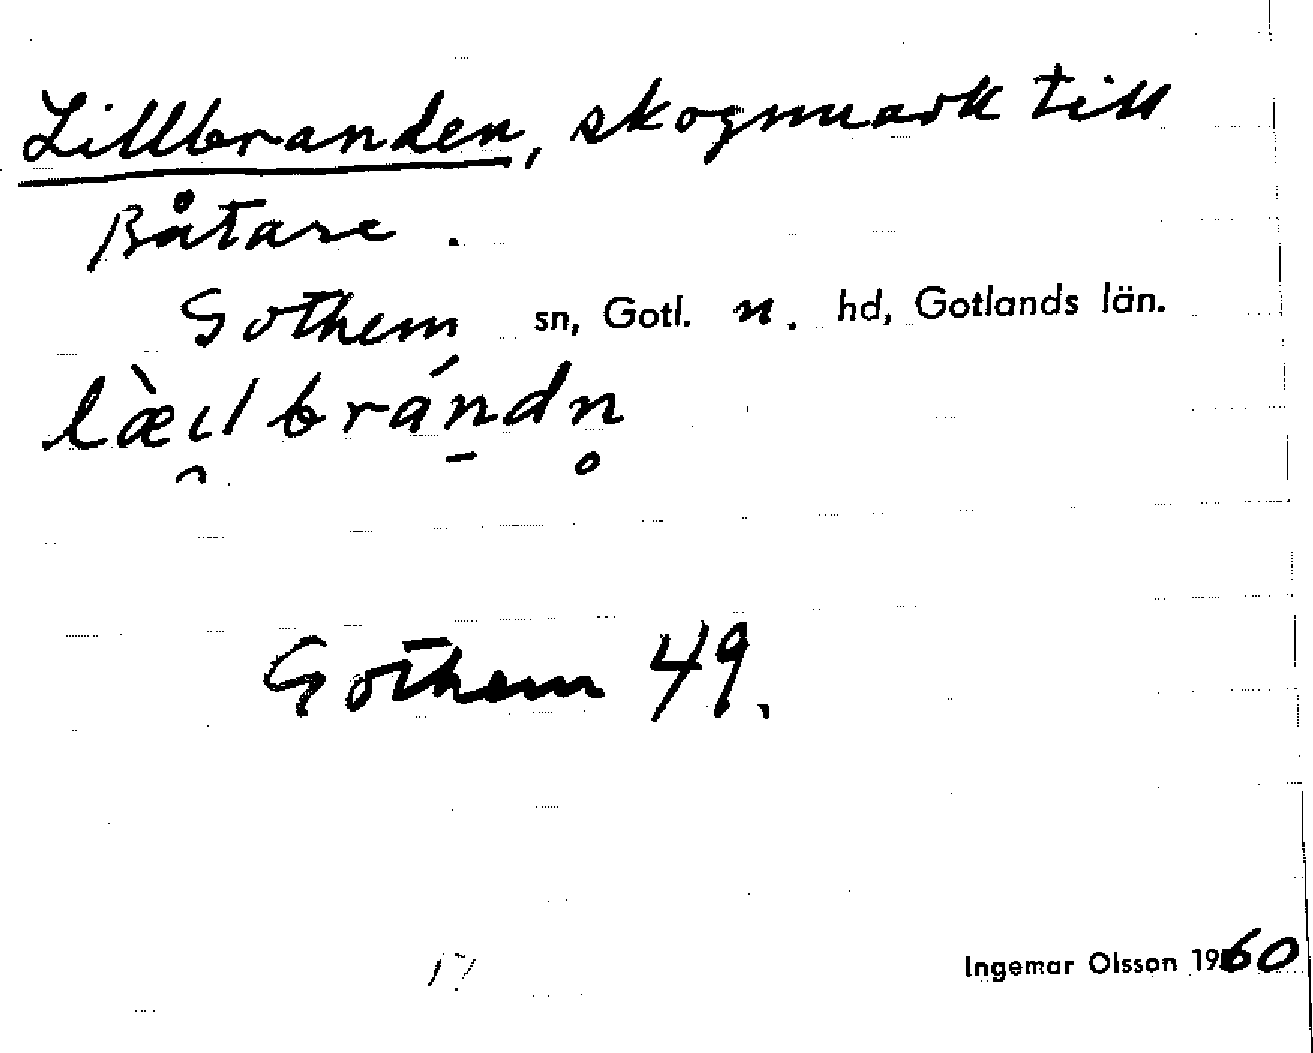 Lillbranden, skogmark till
Båtare.
Gothem sn, Gotl. n. hd, Gotlands län.
læ̀i̯lbrán̠dn̥
Gothem 49.
Ingemar Olsson 1960